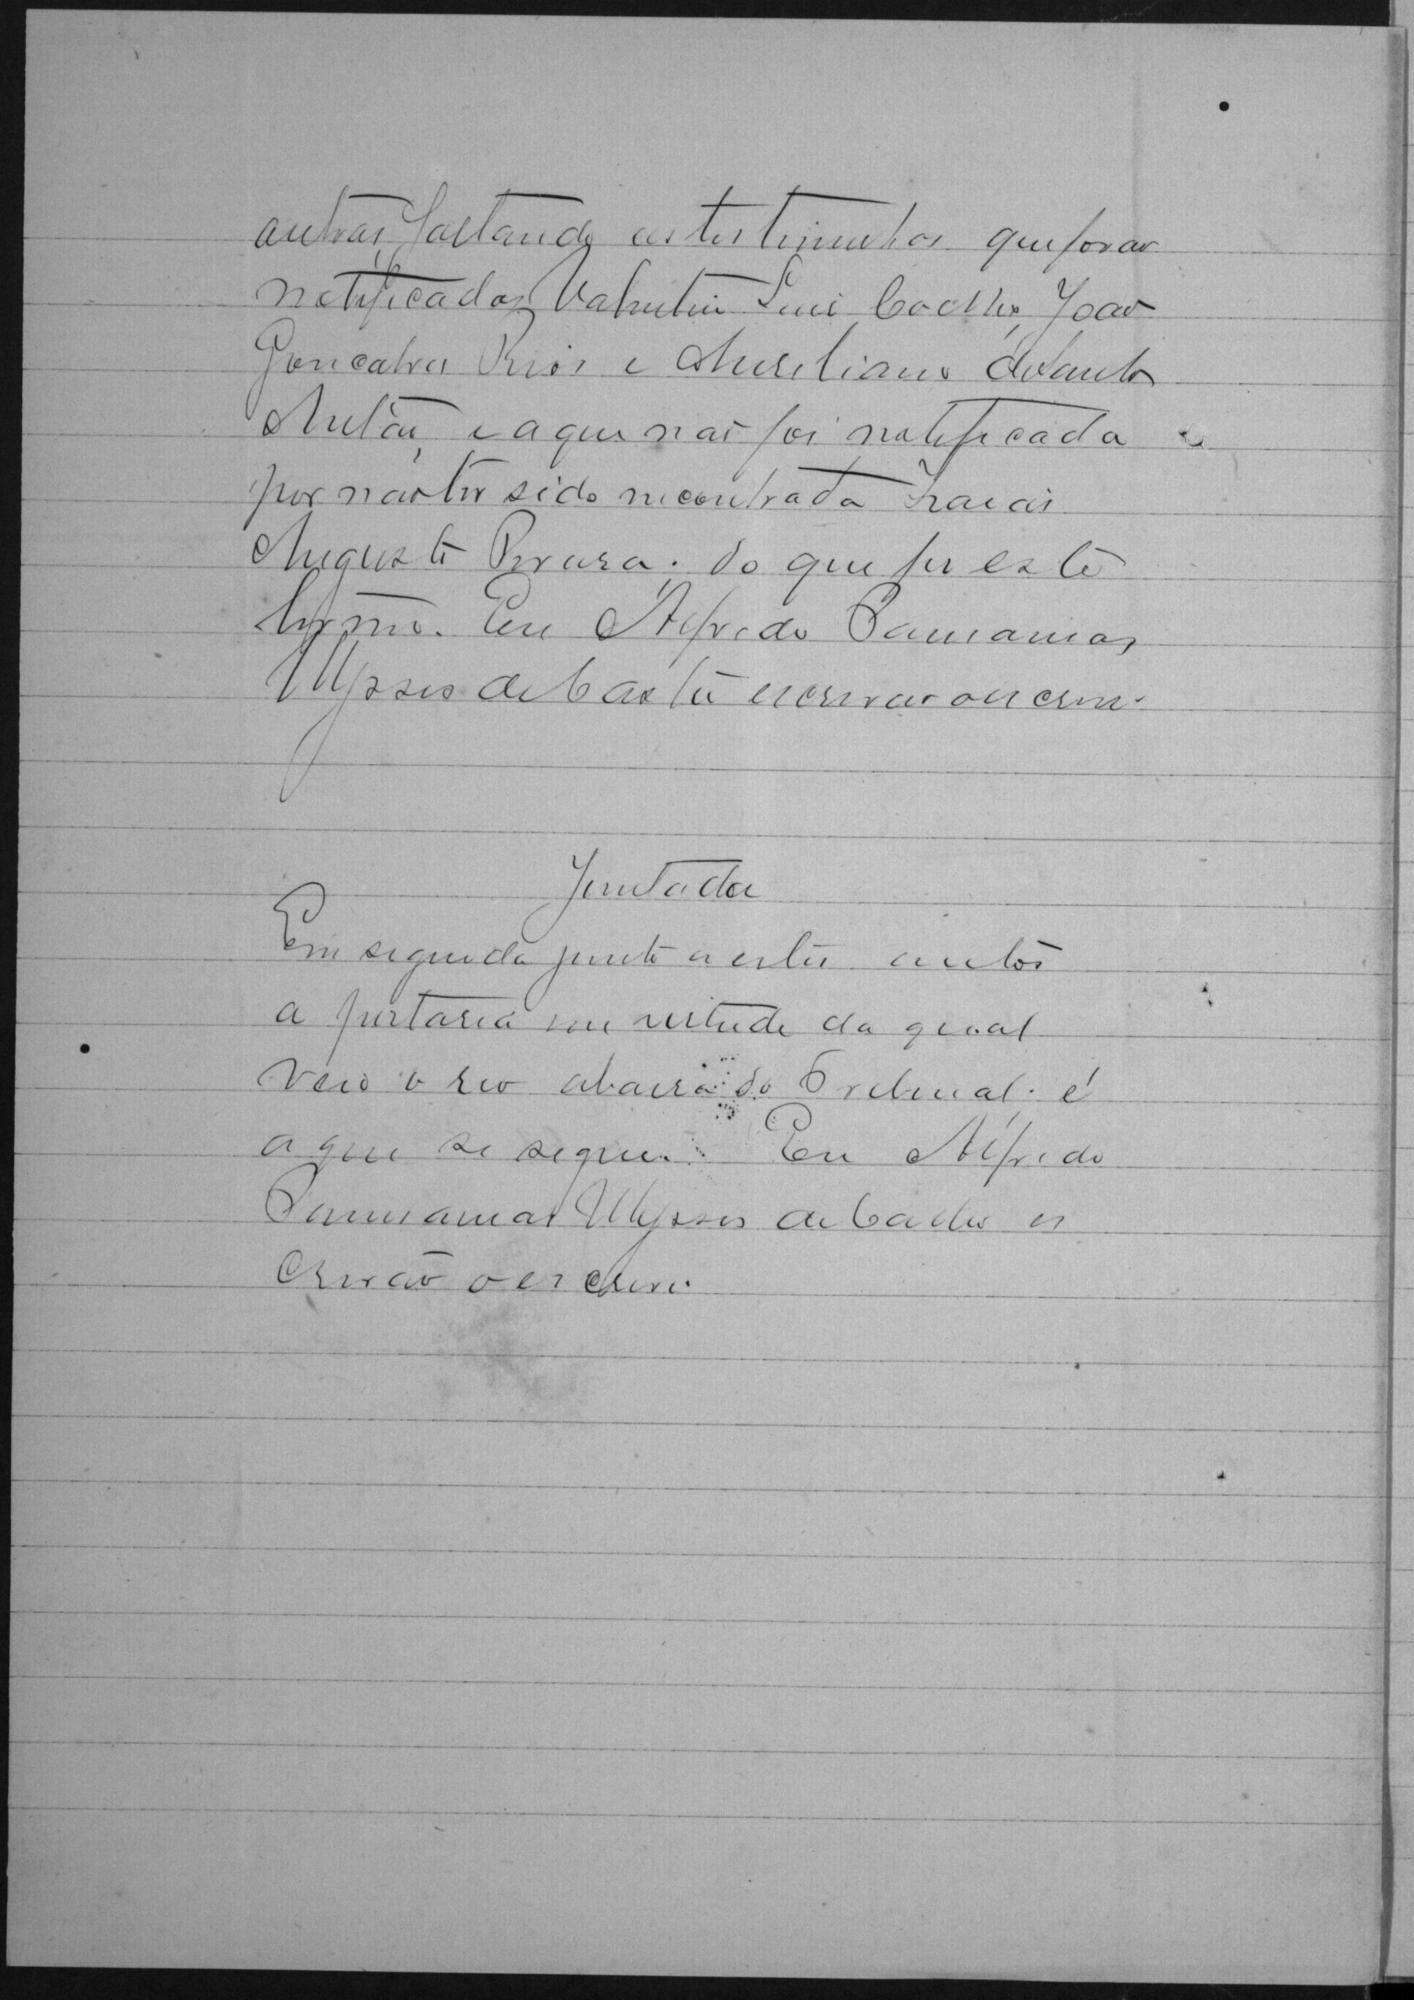 outras, faltando as testimunhas que forão
notificadas Valentim Luis Coelho, João
Gonçalves Rios e Aureliano de Santo
Antão, e a que não foi notificada
por não ter sido incontrada Izaias
Augusto Pereira. do que fiz este
termo. Eu Alfredo
Ulysses de Castro escrivão o escrevi.
Juntada
Em seguida junto a estes autos
a portaria em virtude da qual
veio o reo á barra do Tribunal. é
a que se segue. Eu Alfredo
Ulysses de Castro es
crivão o escrevi.